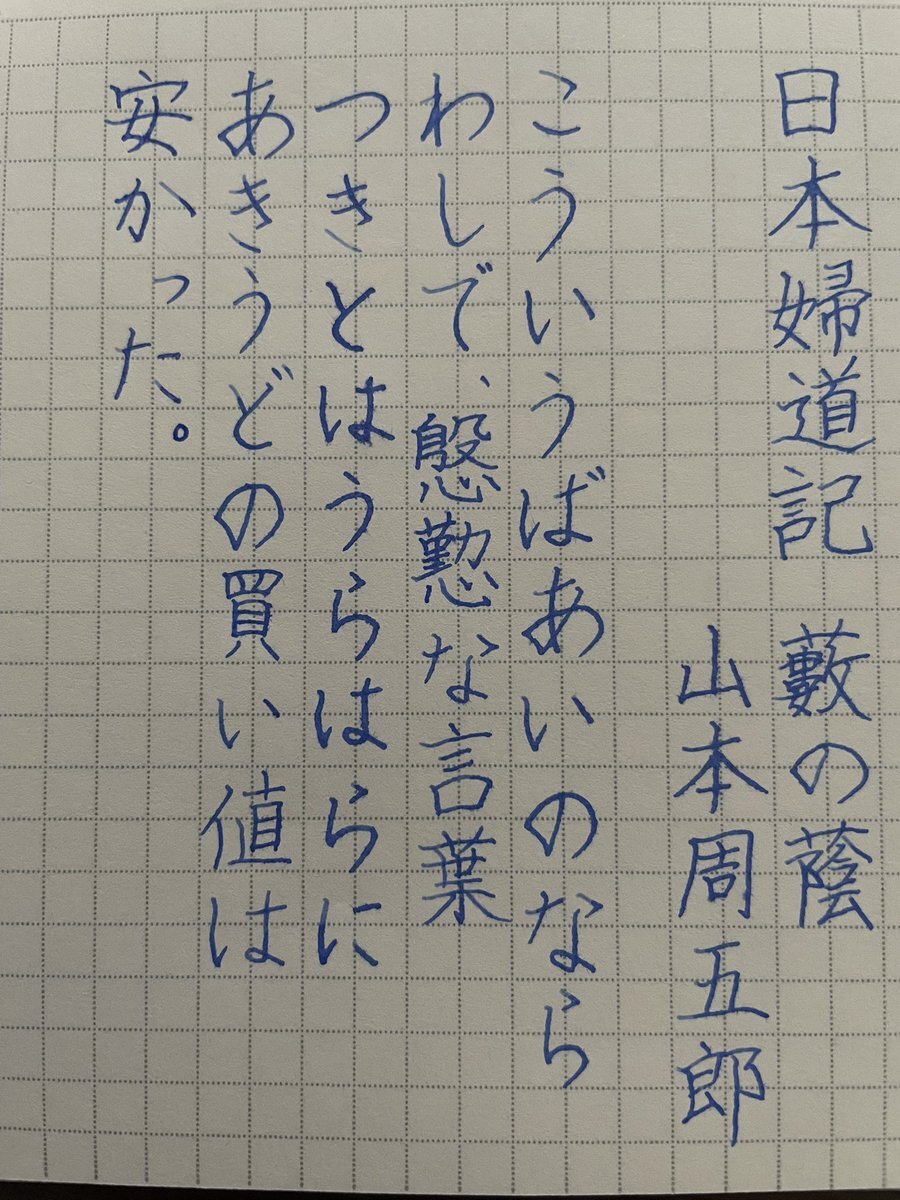 日本婦道記 藪の蔭
山本周五郎
こういうばあいのなら
わしで、慇懃な言葉
つきとはうらはらに
あきうどの買い値は
安かった。